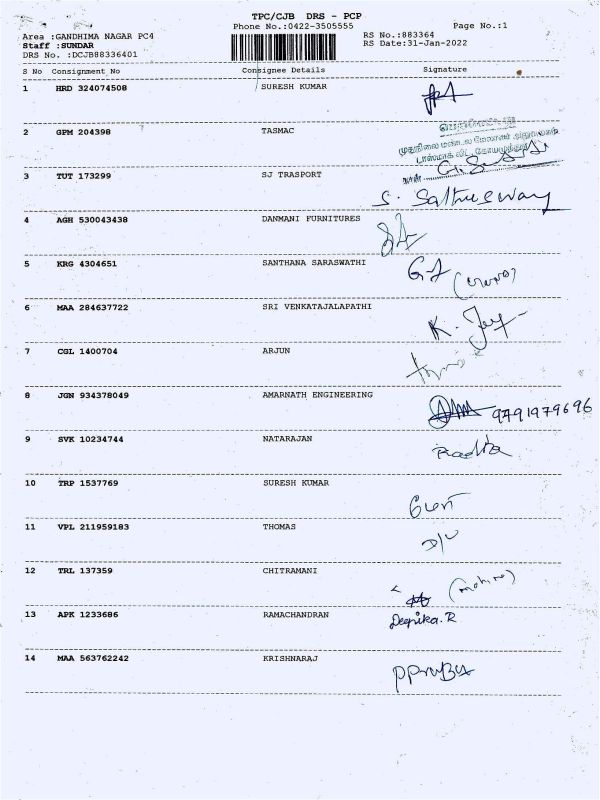 TPC/CJB DRS - PCP
Phone No.:0422-3505555 Page No.:1
Area :GANDHIMA NAGAR PC4 RS No.:883364
Staff :SUNDAR RS Date:31-Jan-2022
DRS No. :DCJB88336401
S No Consignment No Consignee Details Signature
1 HRD 324074508 SURESH KUMAR
2 GPM 204398 TASMAC
3 TUT 173299 SJ TRASPORT
4 AGH 530043438 DANMANI FURNITURES
5 KRG 4304651 SANTHANA SARASWATHI
6 MAA 284637722 SRI VENKATAJALAPATHI
7 CGL 1400704 ARJUN
8 JGN 934378049 AMARNATH ENGINEERING 9791979696
9 SVK 10234744 NATARAJAN
10 TRP 1537769 SURESH KUMAR
11 VPL 211959183 THOMAS
12 TRL 137359 CHITRAMANI
13 APK 1233686 RAMACHANDRAN Deepika.R
14 MAA 563762242 KRISHNARAJ